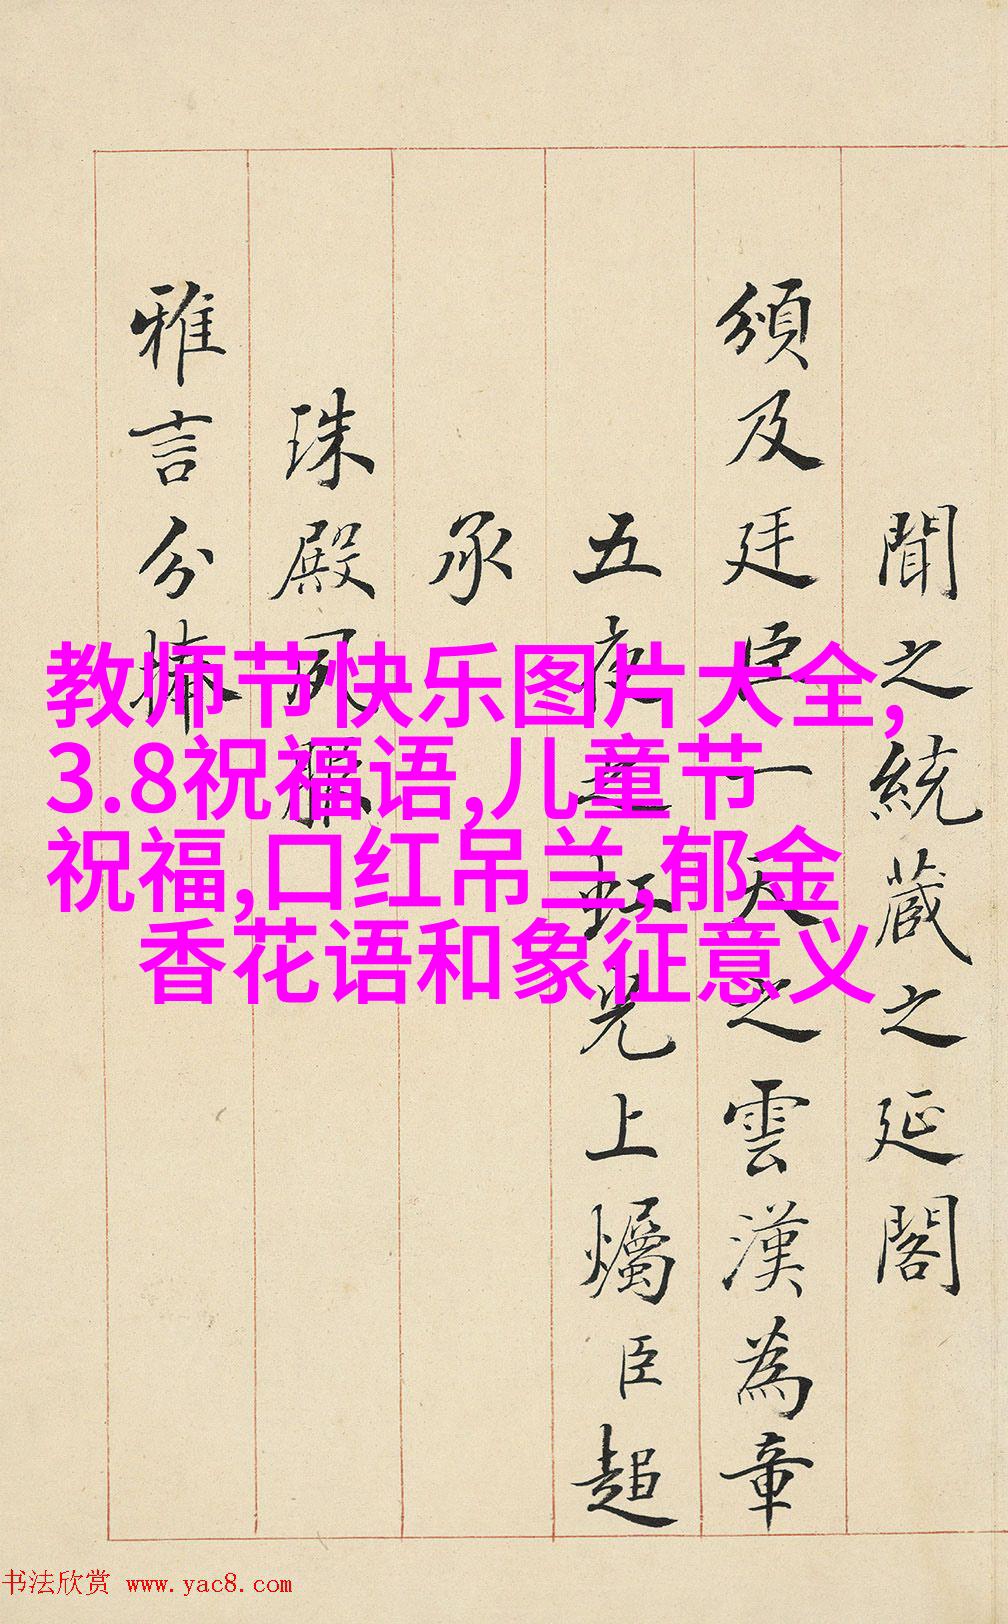 聞之統蔵之延閣
頒及廷臣一天之雲漢為章
五夜虹光上爥臣超
承
珠殿
雅言分捧
教师节快乐图片大全,
3.8祝福语,儿童节
祝福,口红吊兰,郁金
香花语和象征意义
书法欣赏 www.yac8.com